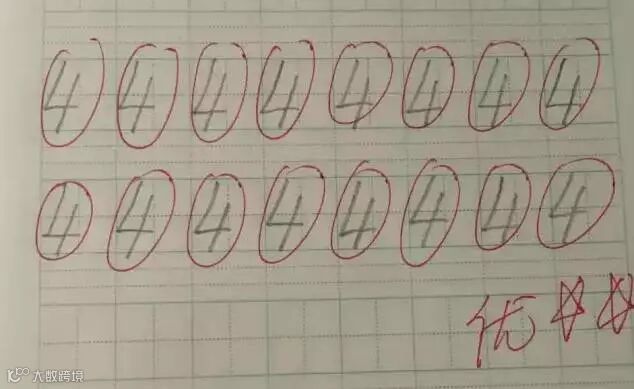 4 4 4 4 4 4 4 4
4 4 4 4 4 4 4 4
优
大数跨境